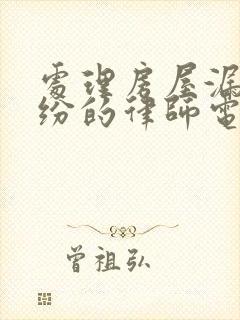 處理房屋漏
紛的律師電
曾祖弘